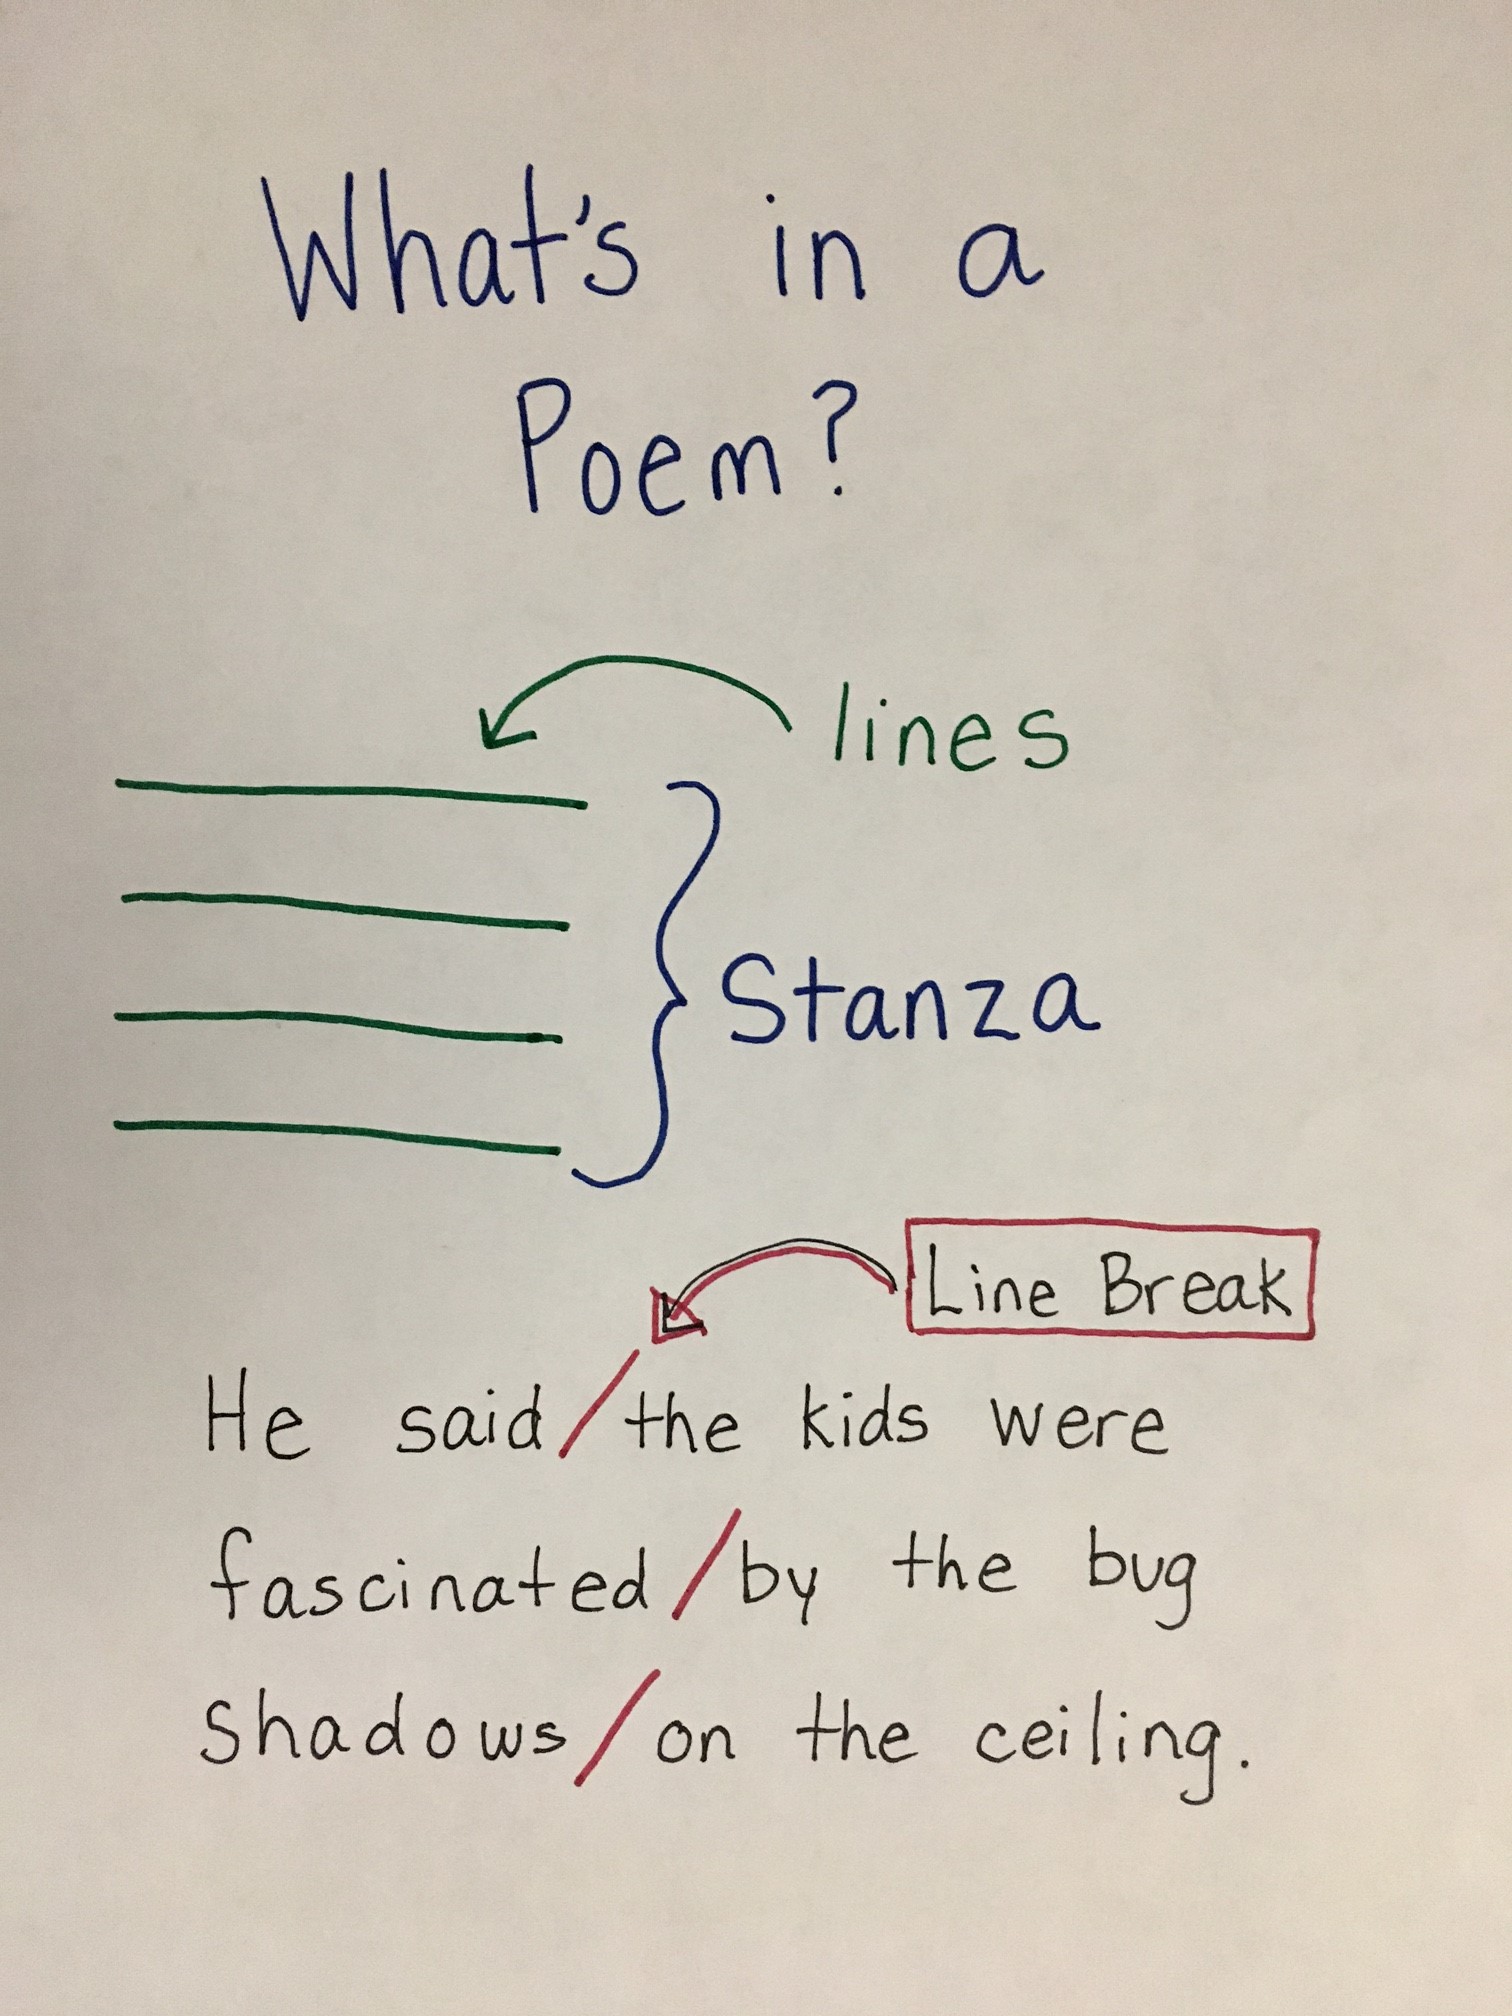 What's in a
Poem?
lines
Stanza
Line Break
He said/the kids were
fascinated/by the bug
shadows/on the ceiling.